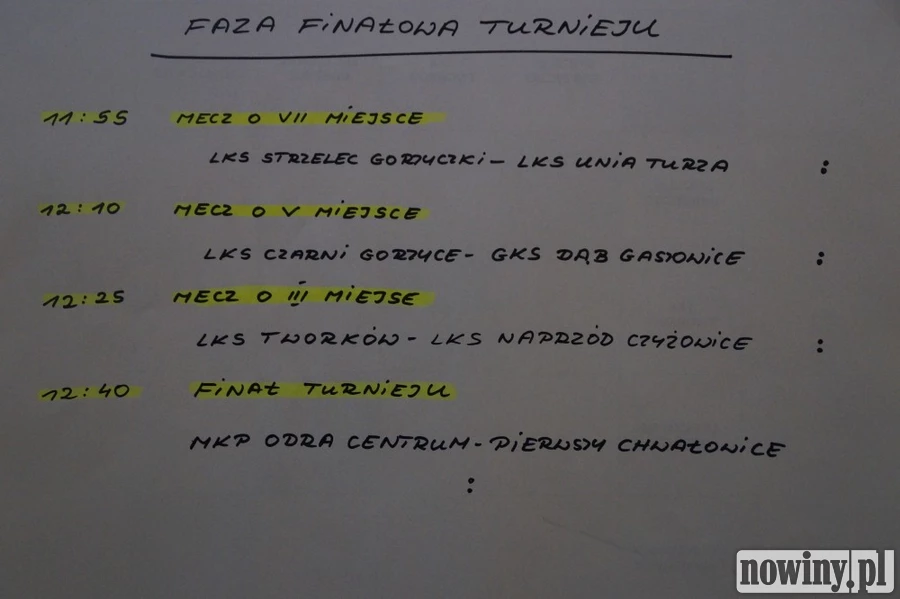 FAZA FINAŁOWA TURNIEJU
11:55 MECZ O VII MIEJSCE
LKS STRZELEC GORZYCZKI – LKS UNIA TURZA :
12:10 MECZ O V MIEJSCE
LKS CZARNI GORZYCE - GKS DĄB GASZOWICE :
12:25 MECZ O III MIEJSE
LKS TWORKÓW - LKS NAPRZÓD CZYŻOWICE :
12:40 FINAŁ TURNIEJU
MKP ODRA CENTRUM - PIERWSZY CHWAŁOWICE
:
nowiny.pl